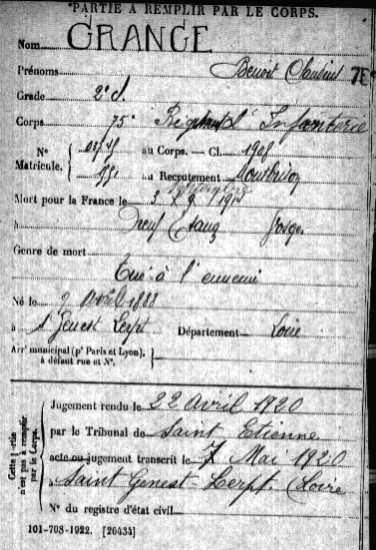 PARTIE A REMPLIR PAR LE CORPS.
Nom GRANGE
Prénoms Benoit Claudius
Grade 2e S.
Corps 75e Régiment d'Infanterie
N° au Corps. — Cl. 1908
Matricule. au Recrutement Montbrison
Mort pour la France le 3 9
à Neuf Etang Vosges
Genre de mort
Tué à l'ennemi
Né le 2 Avril 1888
à St Genest Lerpt Département Loire
Arrt municipal (pr Paris et Lyon), à défaut rue et N°.
Cette partie n'est pas à remplir par le Corps.
Jugement rendu le 22 Avril 1920
par le Tribunal de Saint Etienne
acte ou jugement transcrit le 7 Mai 1920
à Saint Genest-Lerpt. (Loire
N° du registre d'état civil
101-708-1922. [26434]